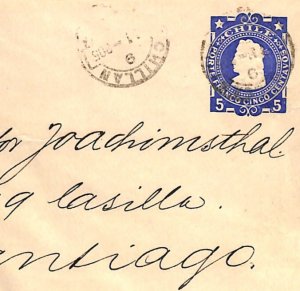 CHILLAN
6
CHILE
PORTE FRANCO CINCO CENTAVOS
5 5
or Joachimsthal.
9 Casilla.
antiago.